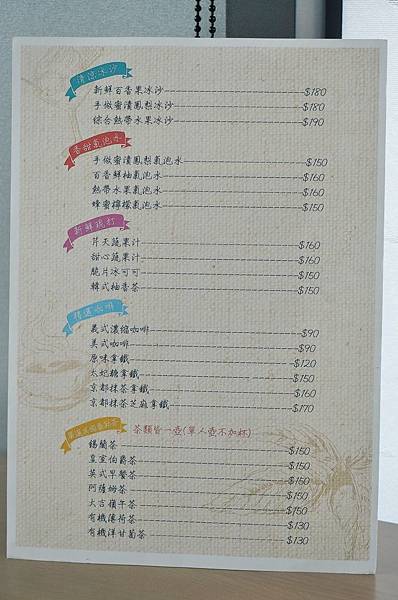 清涼冰沙
新鮮百香果冰沙 $180
手做蜜漬鳳梨冰沙 $180
綜合熱帶水果冰沙 $190
香甜氣泡水
手做蜜漬鳳梨氣泡水 $150
百香鮮柚氣泡水 $160
熱帶水果氣泡水 $160
蜂蜜檸檬氣泡水 $150
新鮮現打
芹天蔬果汁 $160
甜心蔬果汁 $160
脆片冰可可 $150
韓式柚香茶 $150
精選咖啡
義式濃縮咖啡 $90
美式咖啡 $90
原味拿鐵 $120
太妃糖拿鐵 $150
京都抹茶拿鐵 $160
京都抹茶芝麻拿鐵 $170
茶類皆一壺(單人壺不加杯)
錫蘭茶 $150
皇室伯爵茶 $150
英式早餐茶 $150
阿薩姆茶 $150
大吉嶺午茶 $150
有機薄荷茶 $130
有機洋甘菊茶 $130